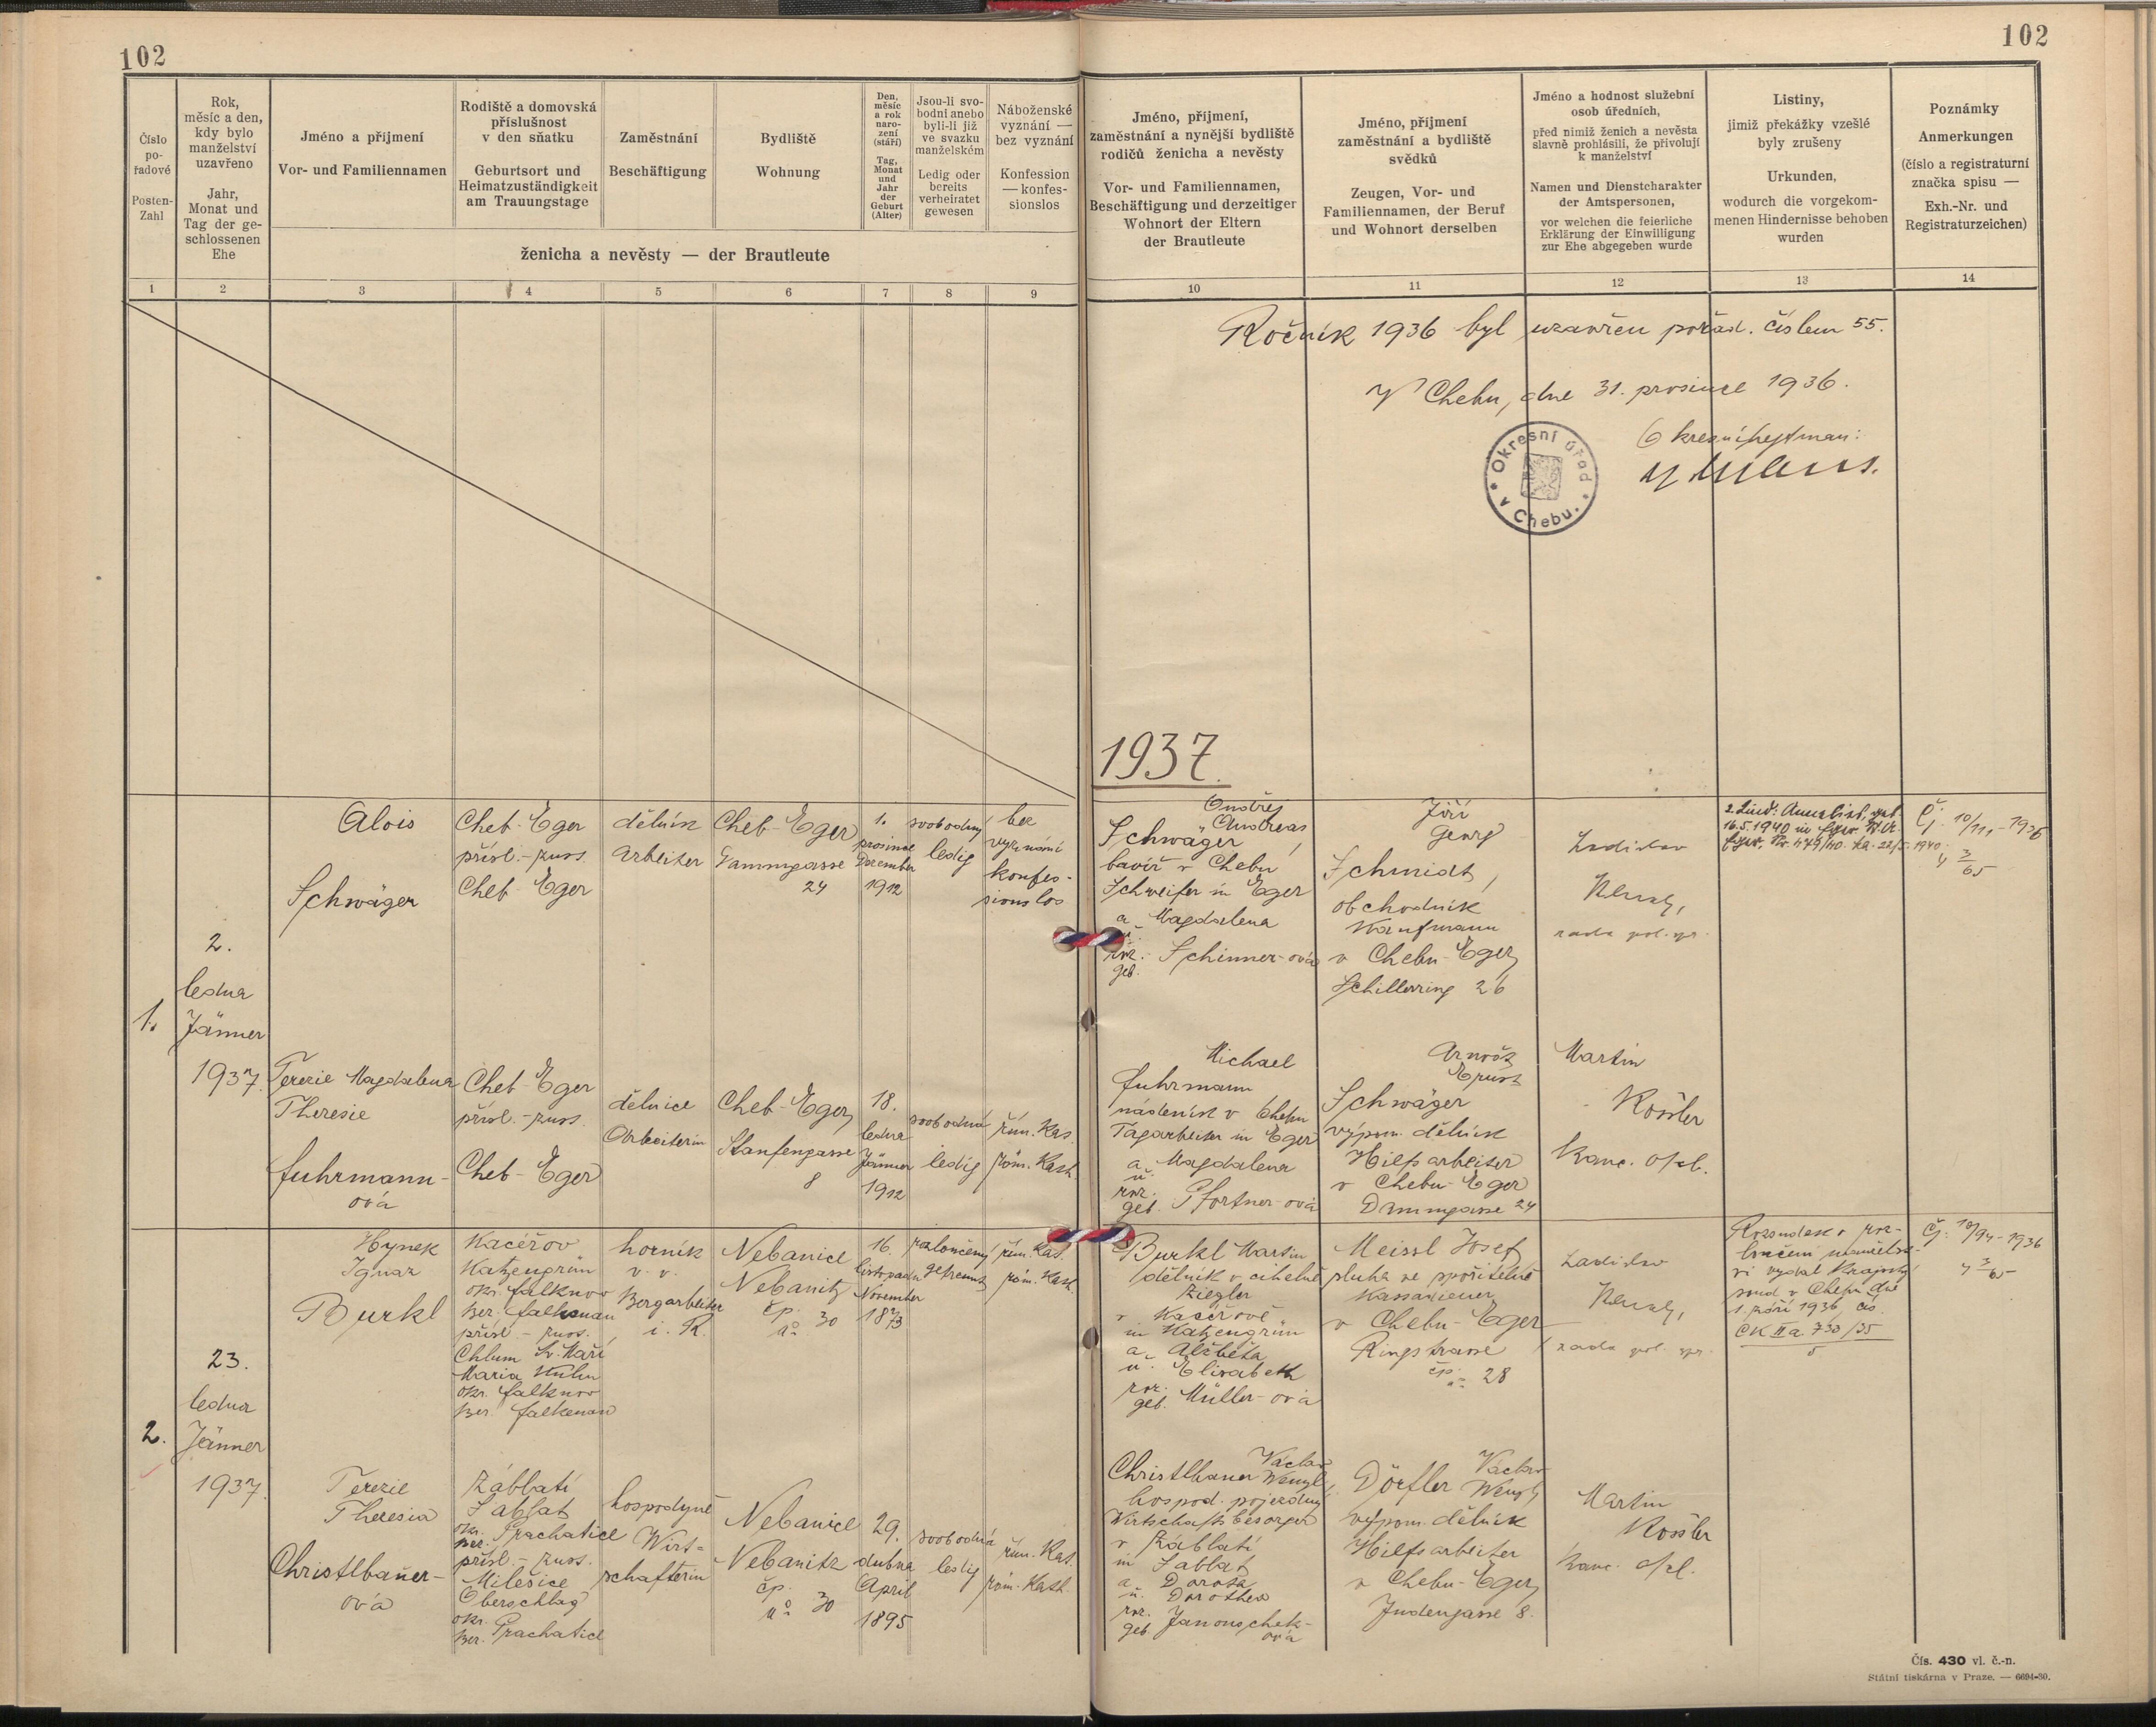 102
102
Číslo
po-
řadové
Posten-
Zahl
Rok,
měsíc a den,
kdy bylo
manželství
uzavřeno
Jahr,
Monat und
Tag der ge-
schlossenen
Ehe
Jméno a příjmení
Vor- und Familiennamen
Rodiště a domovská
příslušnost
v den sňatku
Geburtsort und
Heimatzuständigkeit
am Trauungstage
Zaměstnání
Beschäftigung
Bydliště
Wohnung
Den,
měsíc
a rok
naro-
zení
(stáří)
Tag,
Monat
und
Jahr
der
Geburt
(Alter)
Jsou-li svo-
bodni anebo
byli-li již
ve svazku
manželském
Ledig oder
bereits
verheiratet
gewesen
Náboženské
vyznání —
bez vyznání
Konfession
— konfes-
sionslos
ženicha a nevěsty — der Brautleute
Jméno, příjmení,
zaměstnání a nynější bydliště
rodičů ženicha a nevěsty
Vor- und Familiennamen,
Beschäftigung und derzeitiger
Wohnort der Eltern
der Brautleute
Jméno, příjmení
zaměstnání a bydliště
svědků
Zeugen, Vor- und
Familiennamen, der Beruf
und Wohnort derselben
Jméno a hodnost služební
osob úředních,
před nimiž ženich a nevěsta
slavně prohlásili, že přivolují
k manželství
Namen und Dienstcharakter
der Amtspersonen,
vor welchen die feierliche
Erklärung der Einwilligung
zur Ehe abgegeben wurde
Listiny,
jimiž překážky vzešlé
byly zrušeny
Urkunden,
wodurch die vorgekom-
menen Hindernisse behoben
wurden
Poznámky
Anmerkungen
(číslo a registraturní
značka spisu —
Exh.-Nr. und
Registraturzeichen)
1 2 3 4 5 6 7 8 9 10 11 12 13 14
Ročník 1936 byl uzavřen pořad. číslem 55.
V Chebu, dne 31. prosince 1936.
Okresní hejtman:
Okresní úřad
v Chebu.
1937.
1.
2.
ledna
Jänner
1937.
Alois
Schwäger
Cheb-Eger
přísl.-zust.
Cheb-Eger
dělník
Arbeiter
Cheb-Eger
Dammgasse
24
1.
prosince
Dezember
1912
svobodný
ledig
bez
vyznání
konfes-
sionslos
Ondřej
Andreas
Schwäger,
barvíř v Chebu
in Eger
a Magdalena
u.
roz.
geb. Schinner-ová
Jiří
Georg
Schmidt,
obchodník
Kaufmann
v Chebu-Eger,
Schillerring 26
Ladislav
rada pol. spr.
16.5.1940 in Eger
Čj. 10/11,-1936
3
65
Terezie Magdalena
Theresie
Fuhrmann-
ová
Cheb-Eger
přísl.-zust.
Cheb-Eger
dělnice
Arbeiterin
Cheb-Eger,
Staufengasse
8
18.
ledna
Jänner
1912
svobodná
ledig
řím. kat.
röm. kath.
Michael
Fuhrmann
nádeník v Chebu
Tagarbeiter in Eger
a Magdalena
u.
roz.
geb. Pfortner-ová
Arnošt
Ernst
Schwäger
výpom. dělník
Hilfsarbeiter
v Chebu-Eger
Dammgasse 24
Martin
Rössler
kanc. ofic.
2.
23.
ledna
Jänner
1937.
Hynek
Ignaz
Burkl
Kacéřov
Katzengrün
okr. Falknov
Bez. Falkenau
přísl.-zust.
Chlum Sv. Maří
Maria Kulm
okr. Falknov
Bez. Falkenau
horník
v. v.
Bergarbeiter
i. R.
Nebanice
Nebanitz
čp.
no 30
16.
listopadu
November
1873
rozloučený
getrennt
řím. kat.
röm. kath.
Burkl Martin
dělník v cihelně
Ziegler
v Kacéřově
in Katzengrün
a Alžběta
u. Elisabeth
roz.
geb. Müller-ová
Meissl Josef
sluha ve spořitelně
Kassadiener
v Chebu-Eger
Ringstrasse
čp. 28
Ladislav
rada pol. spr.
Rozsudek o roz-
loučení manžels-
ví vydal Krajský
soud v Chebu dne
1. září 1936, čís.
Ck IIa 730/35
5
Čj. 10/94-1936
3
65
Terezie
Theresia
Christlbauer-
ová
Záblatí
Sablat
okr.
Bez. Prachatice
přísl.-zust.
Milešice
Oberschlag
okr.
Bez. Prachatice
hospodyně
Wirt-
schafterin
Nebanice
Nebanitz
čp.
no 30
29.
dubna
April
1895
svobodná
ledig
řím. kat.
röm. kath.
Václav
Christlbauer Wenzl,
hospod. pojezdný
Wirtschaftsbesorger
v Záblatí
in Sablat
a Dorota
u. Dorothea
roz.
geb. Janouschek-
ová
Václav
Dörfler Wenzl,
výpom. dělník
Hilfsarbeiter
v Chebu-Eger,
Judengasse 8.
Martin
Rössler
kanc. ofic.
Čís. 430 vl. č.-n.
Státní tiskárna v Praze. — 6694-30.